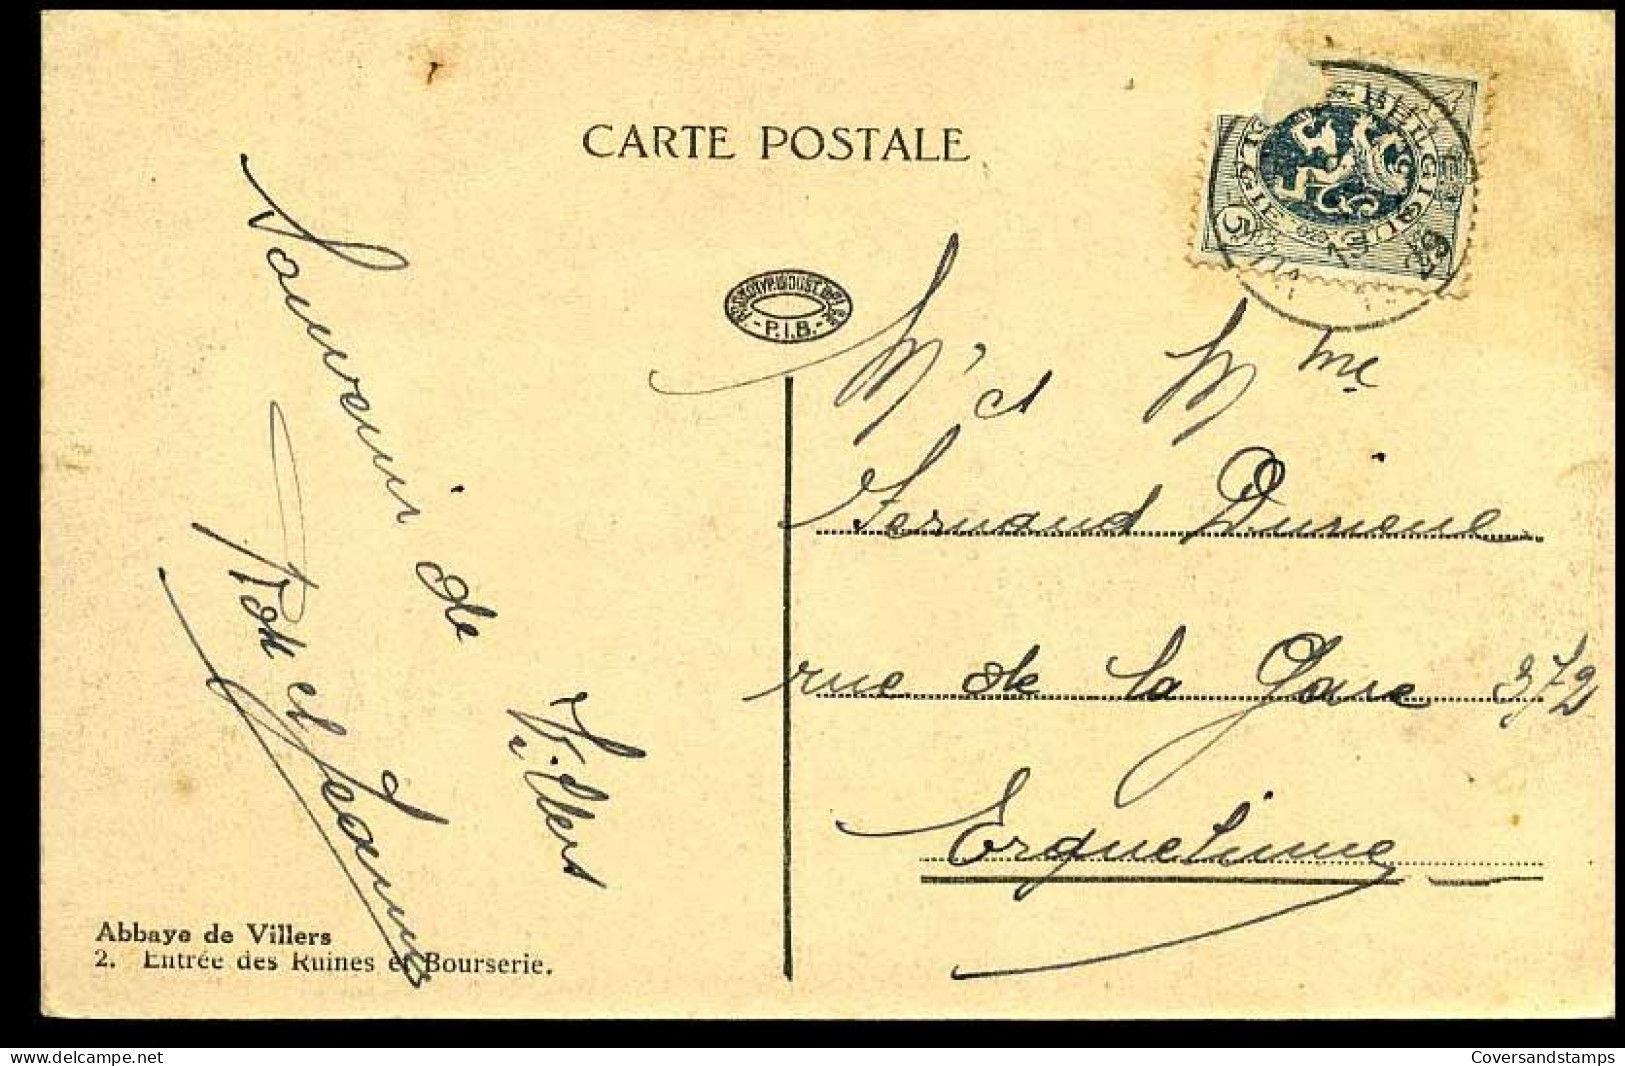 CARTE POSTALE
BELGIQUE
BELGIË
5
- P.I.B. -
Souvenir de
Villers
et Jeanne
Mr et Mme
Fernand
rue de la Gare 372
Erquelinne
Abbaye de Villers
2. Entrée des Ruines et Bourserie.
delcampe.net
Coversandstamps